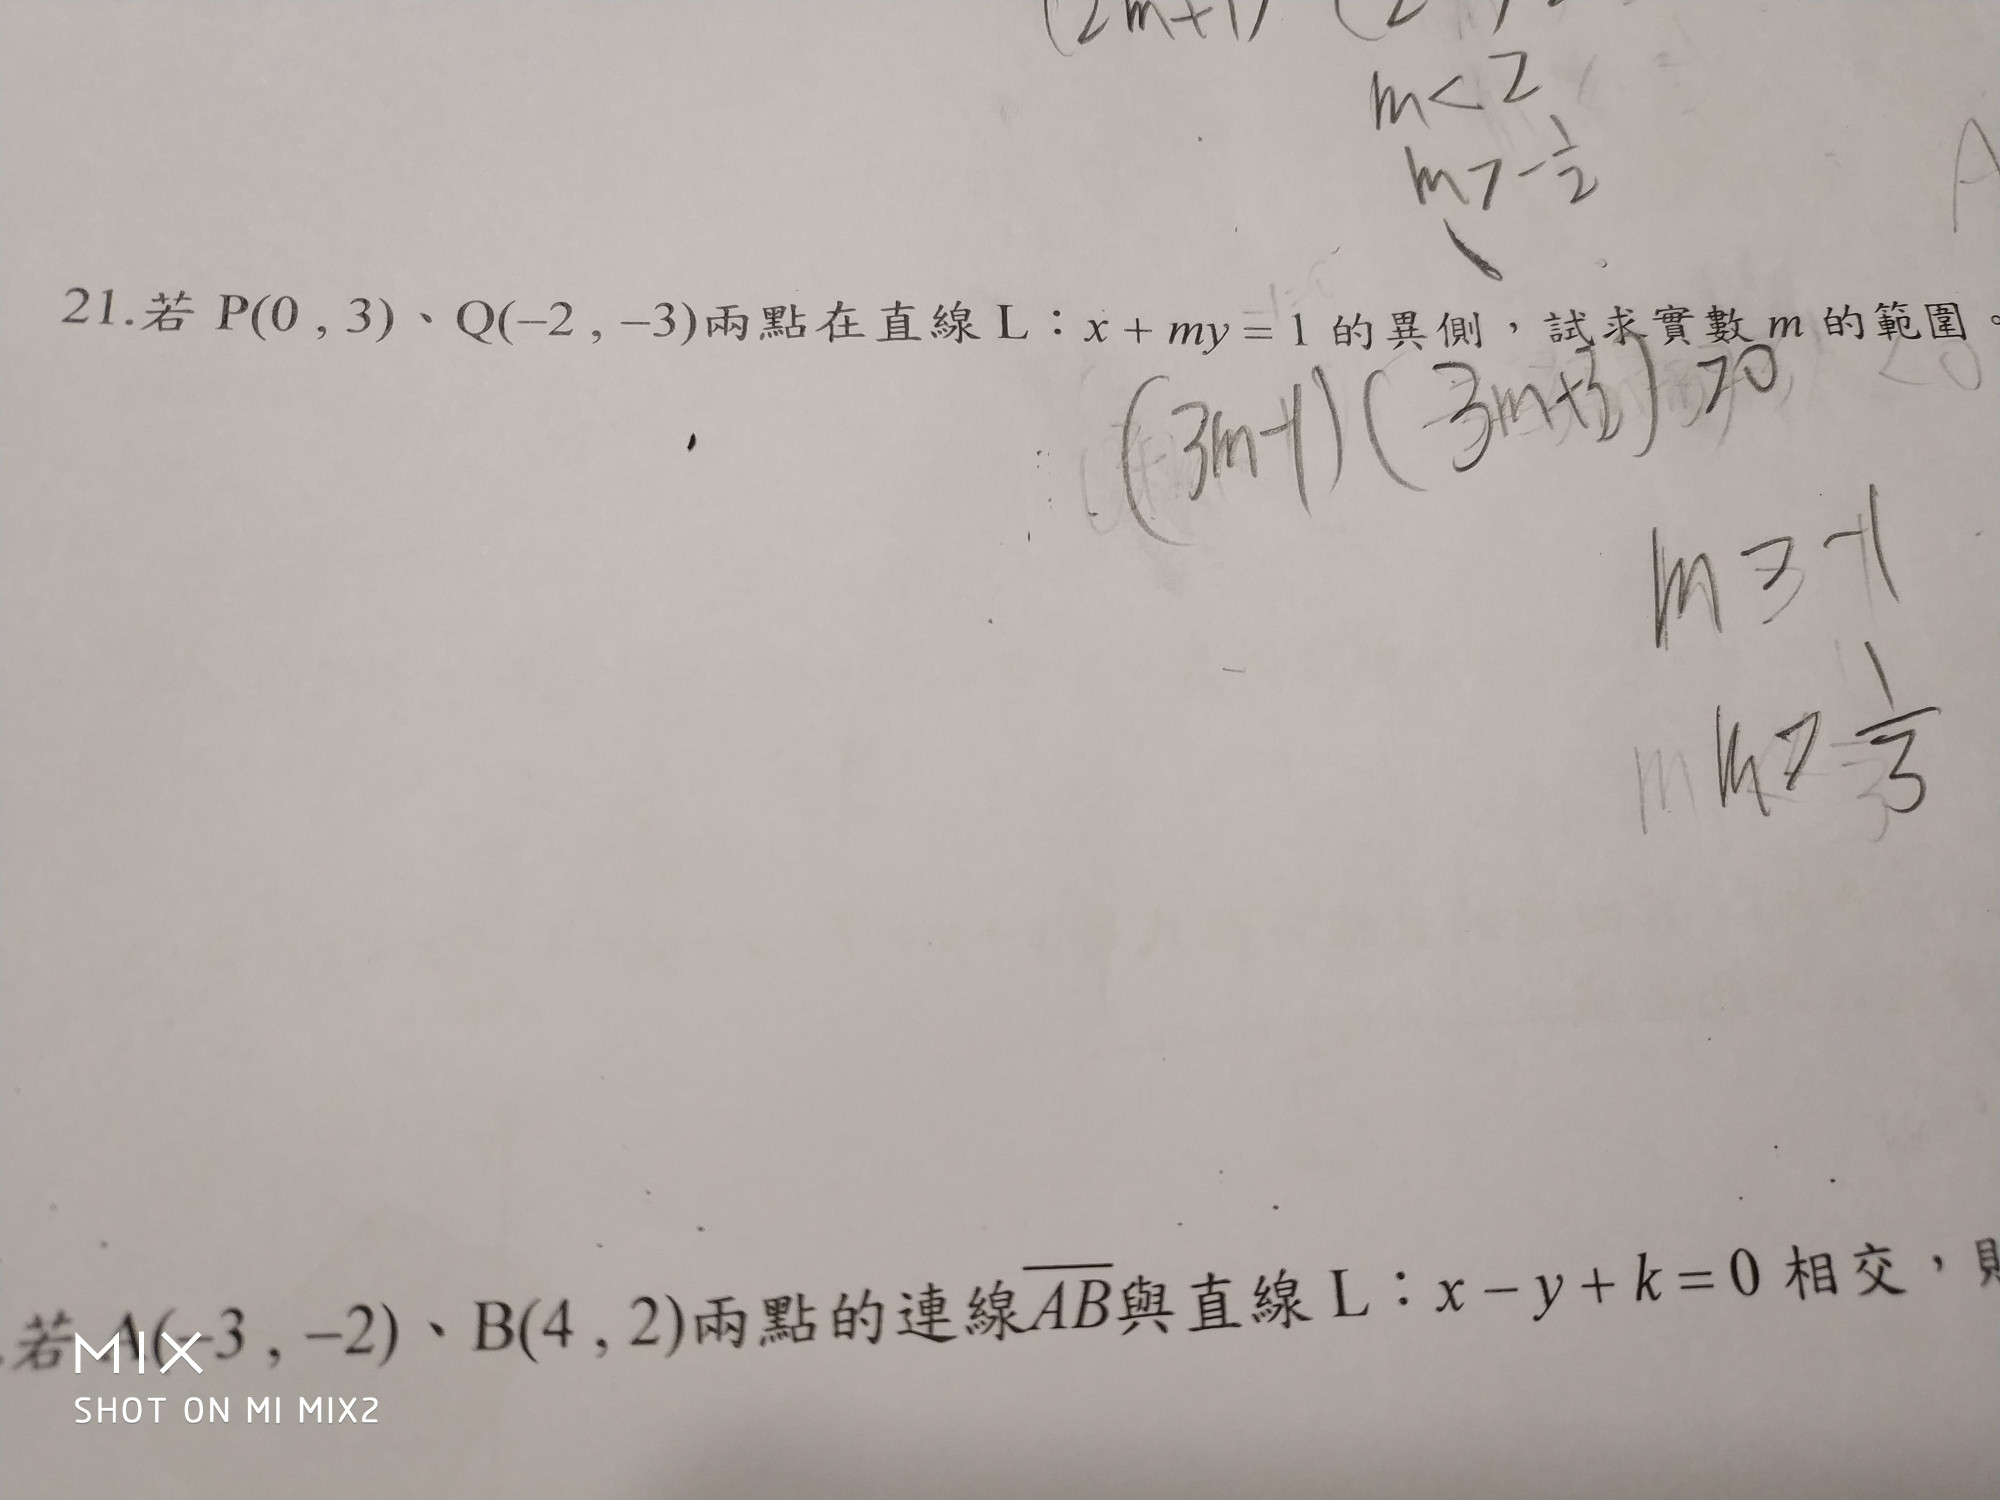 (2m+1) (2
m<2
m>-1/2
21.若 P(0 , 3)、Q(–2 , –3)兩點在直線 L：x + my = 1 的異側，試求實數 m 的範圍。
(3m-1)(3m+3)>0
m>-1
m>1/3
若 A(–3 , –2)、B(4 , 2)兩點的連線AB與直線 L：x – y + k = 0 相交，則
MIX
SHOT ON MI MIX2